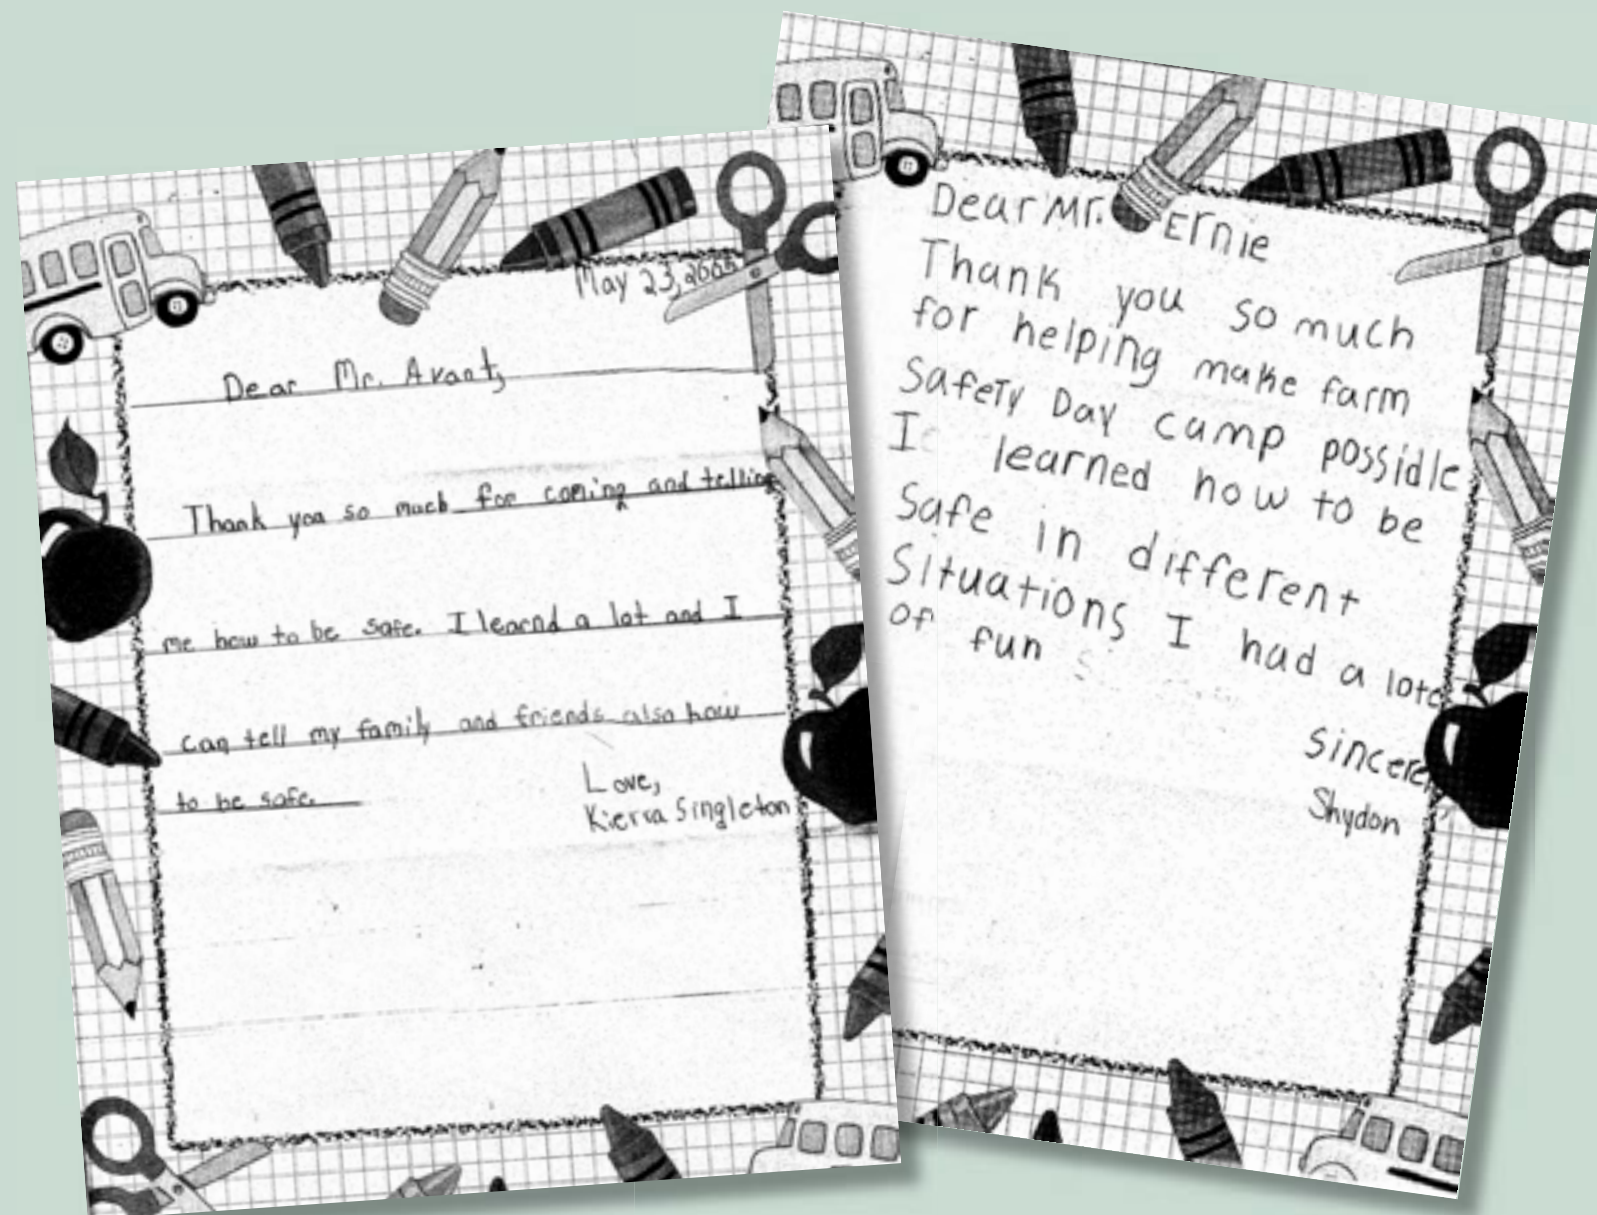 May 23, 2005
Dear Mr. Avant,
Thank you so much for coming and telling
me how to be safe. I learnd a lot and I
can tell my family and friends also how
to be safe.
Love,
Kierra Singleton
Dear Mr. Ernie
Thank you so much
for helping make farm
Safety Day camp possidle
I learned how to be
Safe in different
Situations I had a lot
of fun
Sincerely
Shydon